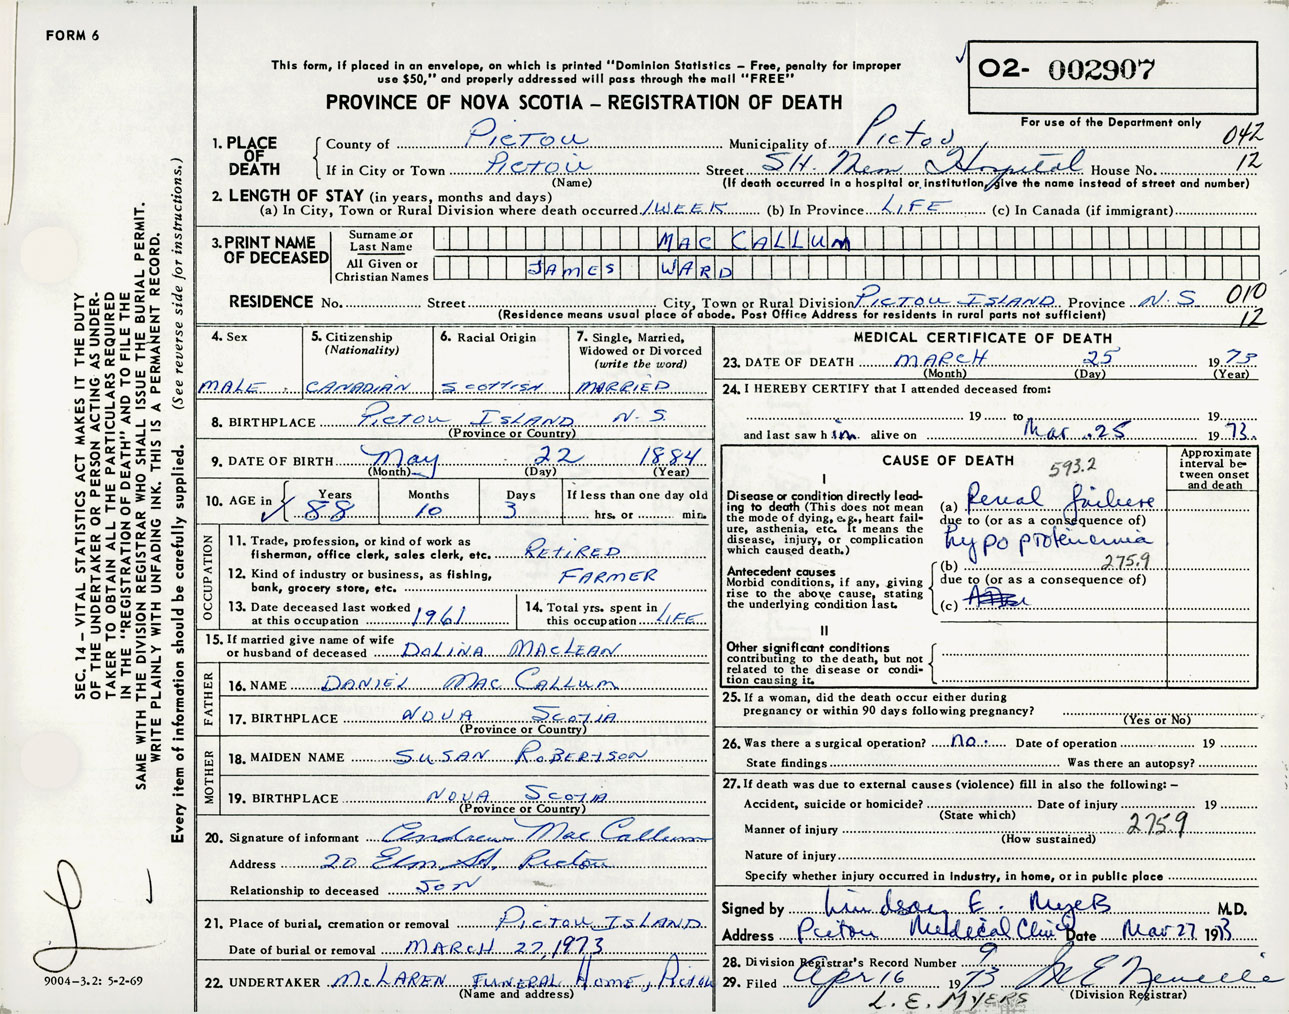 FORM 6
This form, if placed in an envelope, on which is printed "Dominion Statistics – Free, penalty for improper
use $50," and properly addressed will pass through the mail "FREE"
PROVINCE OF NOVA SCOTIA – REGISTRATION OF DEATH
O2- 002907
For use of the Department only
042
12
1. PLACE OF DEATH
County of Pictou Municipality of Pictou
If in City or Town Pictou Street S.H. Mem Hospital House No.
(Name) (If death occurred in a hospital or institution, give the name instead of street and number)
2. LENGTH OF STAY (in years, months and days)
(a) In City, Town or Rural Division where death occurred 1 WEEK (b) In Province LIFE (c) In Canada (if immigrant)
3. PRINT NAME OF DECEASED
Surname or Last Name MAC CALLUM
All Given or Christian Names JAMES WARD
RESIDENCE No. Street City, Town or Rural Division PICTOU ISLAND Province N.S 010
(Residence means usual place of abode. Post Office Address for residents in rural parts not sufficient) 12
4. Sex
MALE
5. Citizenship
(Nationality)
CANADIAN
6. Racial Origin
SCOTTISH
7. Single, Married,
Widowed or Divorced
(write the word)
MARRIED
8. BIRTHPLACE PICTOU ISLAND N.S.
(Province or Country)
9. DATE OF BIRTH May 22 1884
(Month) (Day) (Year)
10. AGE in Years Months Days If less than one day old
88 10 3 hrs. or min.
OCCUPATION
11. Trade, profession, or kind of work as
fisherman, office clerk, sales clerk, etc. RETIRED
12. Kind of industry or business, as fishing,
bank, grocery store, etc. FARMER
13. Date deceased last worked
at this occupation 1961
14. Total yrs. spent in
this occupation LIFE
15. If married give name of wife
or husband of deceased DOLINA MACLEAN
FATHER
16. NAME DANIEL MAC CALLUM
17. BIRTHPLACE NOVA SCOTIA
(Province or Country)
MOTHER
18. MAIDEN NAME SUSAN ROBERTSON
19. BIRTHPLACE NOVA SCOTIA
(Province or Country)
20. Signature of informant Andrew Mac Callum
Address 20 Elm St, Pictou
Relationship to deceased SON
21. Place of burial, cremation or removal PICTOU ISLAND
Date of burial or removal MARCH 27, 1973
22. UNDERTAKER McLAREN FUNERAL Home, Pictou
(Name and address)
MEDICAL CERTIFICATE OF DEATH
23. DATE OF DEATH MARCH 25 1973
(Month) (Day) (Year)
24. I HEREBY CERTIFY that I attended deceased from:
19 to 19
and last saw him alive on Mar. 25 1973
CAUSE OF DEATH 593.2
Approximate
interval be-
tween onset
and death
I
Disease or condition directly lead-
ing to death (This does not mean
the mode of dying, e.g., heart fail-
ure, asthenia, etc. It means the
disease, injury, or complication
which caused death.)
(a) Renal failure
due to (or as a consequence of)
hypoproteinemia
(b) 275.9
due to (or as a consequence of)
(c)
Antecedent causes
Morbid conditions, if any, giving
rise to the above cause, stating
the underlying condition last.
II
Other significant conditions
contributing to the death, but not
related to the disease or condi-
tion causing it.
25. If a woman, did the death occur either during
pregnancy or within 90 days following pregnancy?
(Yes or No)
26. Was there a surgical operation? no. Date of operation 19
State findings Was there an autopsy?
27. If death was due to external causes (violence) fill in also the following: –
Accident, suicide or homicide? Date of injury 19
(State which)
Manner of injury 275.9
(How sustained)
Nature of injury
Specify whether injury occurred in industry, in home, or in public place
Signed by Lindsay E. Myers M.D.
Address Pictou Medical Clinic Date Mar 27 1973
28. Division Registrar's Record Number 9
29. Filed Apr 16 1973
(Division Registrar)
L. E. MYERS
SEC. 14 – VITAL STATISTICS ACT MAKES IT THE DUTY
OF THE UNDERTAKER OR PERSON ACTING AS UNDER-
TAKER TO OBTAIN ALL THE PARTICULARS REQUIRED
IN THE "REGISTRATION OF DEATH" AND TO FILE THE
SAME WITH THE DIVISION REGISTRAR WHO SHALL ISSUE THE BURIAL PERMIT.
WRITE PLAINLY WITH UNFADING INK. THIS IS A PERMANENT RECORD.
Every item of information should be carefully supplied. (See reverse side for instructions.)
9004–3.2: 5-2-69